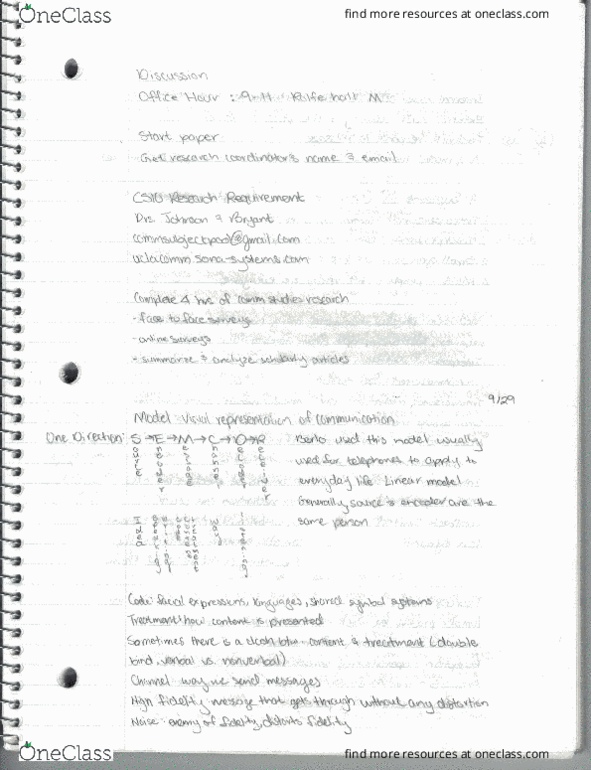 OneClass
find more resources at oneclass.com
Discussion
Office Hour : 9-11 Rolfe hall M
Start paper
Get research coordinator's name & email
CS10 Research Requirement
Drs. Johnson & Bryant
commsubjectpool@gmail.com
uclacomm.sona-systems.com
Complete 4 hrs of comm studies research
- face to face surveys
- online surveys
- summarize & analyze scholarly articles
9/29
Model: visual representation of communication
One Direction: S → E → M → C → D → R
Source Encoder Message Channel Decoder Receiver
Berlo used this model usually
used for telephones to apply to
everyday life. Linear model
Generally source & encoder are the
same person
Idea
way
listening
Code: facial expressions, languages, shared symbol systems
Treatment: how content is presented
Sometimes there is a clash btw. content & treatment (double
bind, verbal vs. nonverbal)
Channel: way we send messages
High fidelity: message that gets through without any distortion
Noise: enemy of fidelity, distorts fidelity
OneClass
find more resources at oneclass.com